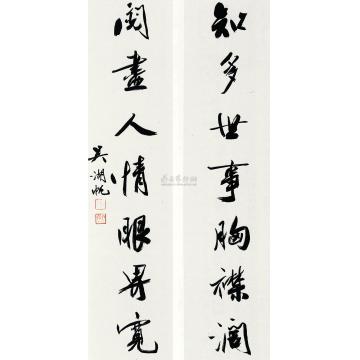 知多世事胸襟阔
阅尽人情眼界宽
吴湖帆